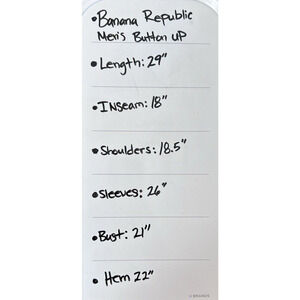 •Banana Republic
Men's Button UP
•Length: 29"
•Inseam: 18"
•Shoulders: 18.5"
•Sleeves: 26"
•Bust: 21"
• Hem 22"